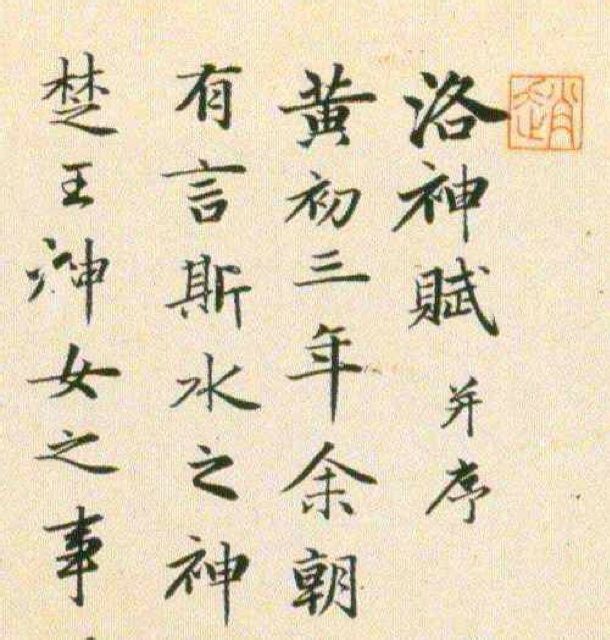 洛神賦并序
黃初三年余朝
有言斯水之神
楚王神女之事
趙